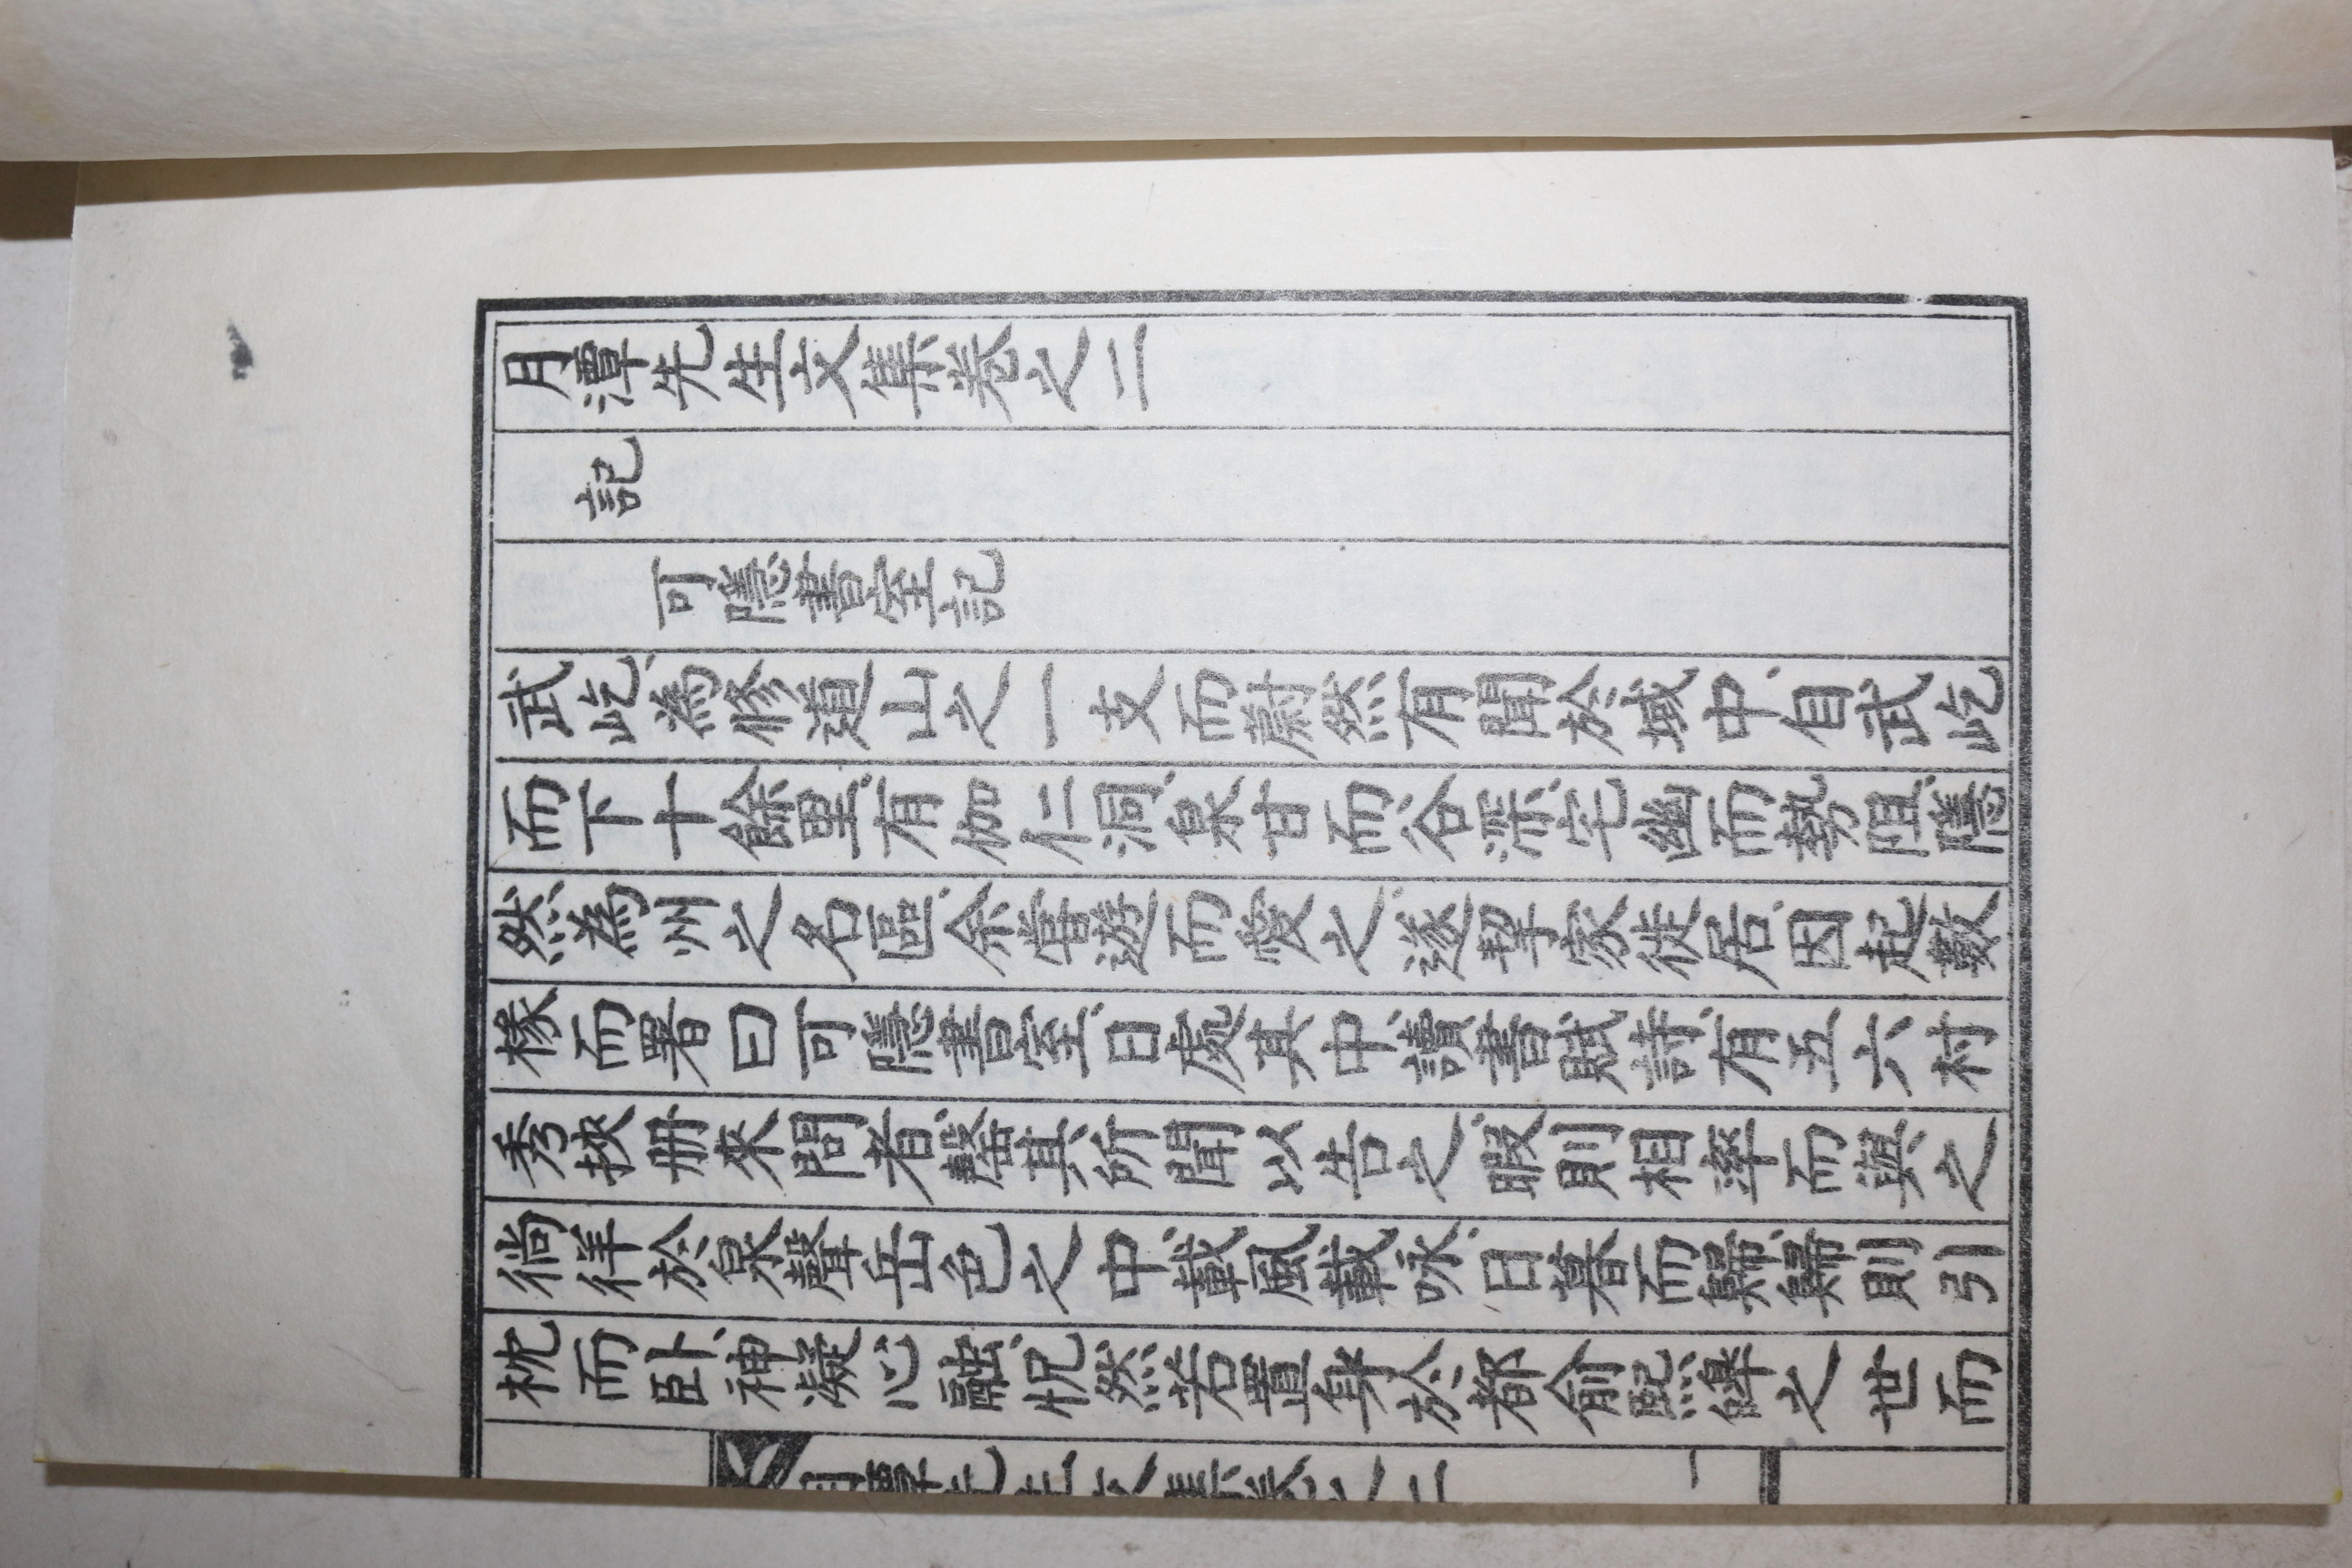 月潭先生文集卷之二
記
可隱書室記
武屹、為修道山之一支而蔚然有聞於域中、自武屹
而下十餘里、有伽仁洞、泉甘而谷深、宅幽而勢阻、隱
然為州之名區、余嘗遊而愛之、遂挈家徙居、因起數
椽而署曰可隱書室、日處其中、讀書賦詩、有五六村
秀挾册來問者、罄其所聞以告之、暇則相率而與之
徜徉於泉聲岳色之中、載風載咏、日暮而歸、歸則引
枕而卧、神凝心融、怳然若置身於都俞熙皥之世而
月潭先生文集卷之二
一